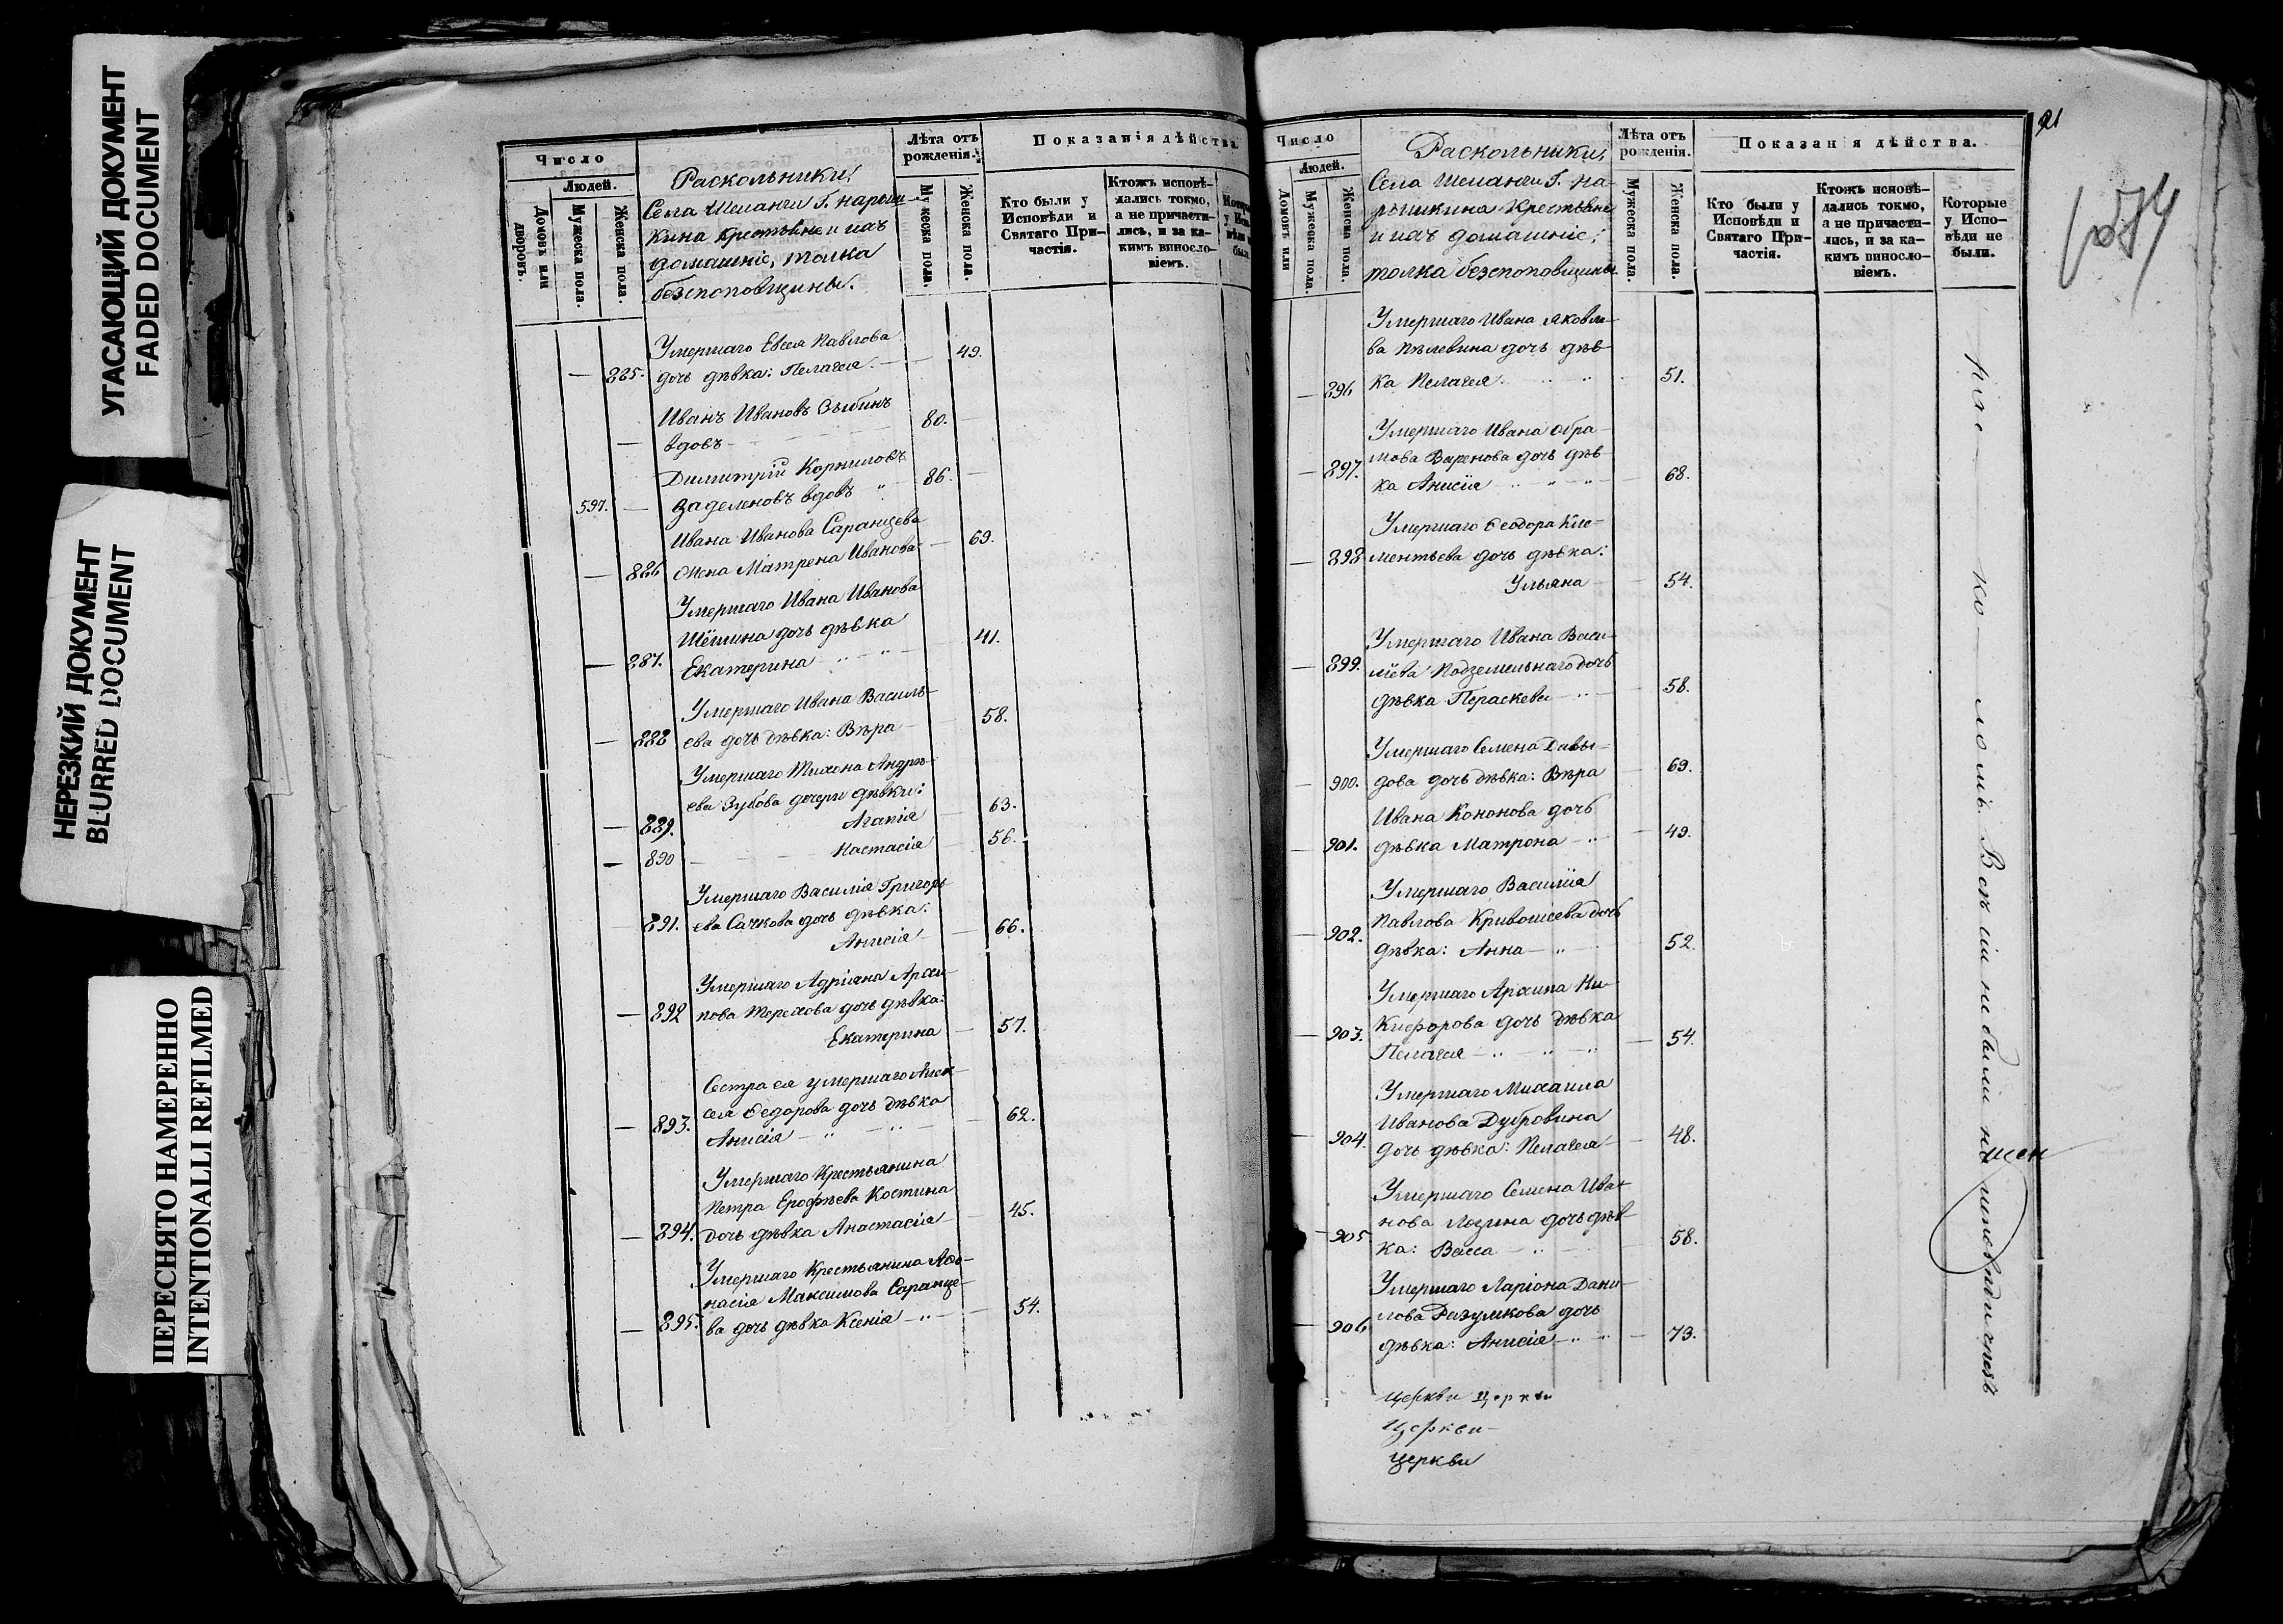 УГАСАЮЩИЙ ДОКУМЕНТ
FADED DOCUMENT
НЕРЕЗКИЙ ДОКУМЕНТ
BLURRED DOCUMENT
ПЕРЕСНЯТО НАМЕРЕННО
INTENTIONALLI REFILMED
Число
Людей.
Домовъ или дворовъ.
Мужеска пола.
Женска пола.
Раскольники,
Села Шеланги Г. Нарыш-
кина крестьяне и ихъ
домашніе, толка
безпоповщины.
Лѣта отъ рожденія.
Мужеска пола.
Женска пола.
Показанія дѣйства.
Кто были у Исповѣди и Святаго При-частія.
Ктожъ исповѣ-дались токмо, а не причасти-лись, и за ка-кимъ винosло-віемъ.
Умершаго Евсея Павлова
885. дочь дѣвка: Пелагея. — 49.
Иванъ Ивановъ Зыбинъ 80.
вдовъ
Димитрій Корниловъ
597. Заделеновъ вдовъ „ 86.
Ивана Иванова Саранцева
886 жена Матрена Иванова 69.
Умершаго Ивана Иванова
Шёшина дочь дѣвка
887. Екатерина 41.
Умершаго Ивана Василь-
888 ева дочь дѣвка: Вѣра 58.
Умершаго Тихона Андрѣ-
ева Зубова дочери дѣвки:
889. Агапія 63.
890 Настасія 56.
Умершаго Василія Григорь-
891. ева Сачкова дочь дѣвка:
Анисія 66.
Умершаго Адріана Архи-
892 пова Терехова дочь дѣвка:
Екатерина 57.
Сестра ея умершаго Алек-
сея Федорова дочь дѣвка
893. Анисія 62.
Умершаго Крестьянина
Петра Ерофѣева Костина
894. дочь дѣвка Анастасія 45.
Умершаго Крестьянина Афо-
насія Максимова Саранце-
895. ва дочь дѣвка Ксенія 54.
Число
Людей.
Домовъ или
Мужеска пола.
Женска пола.
Раскольники,
Села Шеланги Г. На-
рышкина крестьяне
и ихъ домашніе,
толка безпоповщины.
Лѣта отъ рожденія.
Мужеска пола.
Женска пола.
Показан я дѣйства.
Кто были у Исповѣди и Святаго При-частія.
Ктожъ исповѣ-дались токмо, а не причасти-лись, и за ка-кимъ винoсло-віемъ.
Которые у Испо-вѣди не были.
Умершаго Ивана Яковле-
ва Пелевина дочь дѣв-
896 ка Пелагея. 51.
Умершаго Ивана Обра-
мова Варенова дочь дѣв-
897. ка Анисія 68.
Умершаго Феодора Кле-
898 ментьева дочь дѣвка:
Ульяна 54.
Умершаго Ивана Васи-
899. лiева Подземельнаго дочь
дѣвка Параскева 58.
Умершаго Семена Давы-
900. дова дочь дѣвка: Вѣра 69.
Ивана Кононова дочь
901. дѣвка Матрона 49.
Умершаго Василія
Павлова Кривошеева дочь
902. дѣвка: Анна 52.
Умершаго Архипа Ни-
903. кифорова дочь дѣвка
Пелагея 54.
Умершаго Михаила
Иванова Дубровина
904. дочь дѣвка: Пелагея 48.
Умершаго Семена Ива-
нова Лозина дочь дѣв-
905 ка: Васса 58.
Умершаго Ларіона Дани-
лова Разумкова дочь
906 дѣвка: Анисія 73.
церкви церкви
церкви
церкви